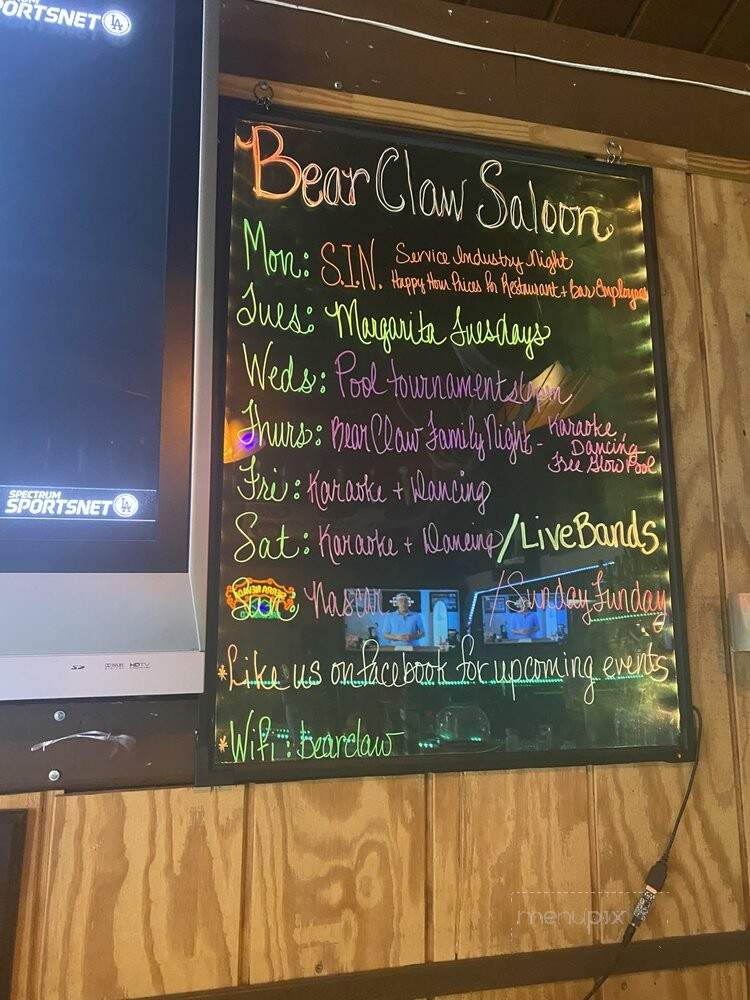 SPORTSNET LA
SPECTRUM
SPORTSNET LA
HDTV
Bear Claw Saloon
Mon: S.I.N. Service Industry Night
Happy Hour Prices for Restaurant + Bar Employees
Tues: Margarita Tuesdays
Weds: Pool tournaments 6pm
Thurs: Bear Claw Family Night - Karaoke
Dancing
Free Glow Pool
Fri: Karaoke + Dancing
Sat: Karaoke + Dancing / Live Bands
Sun: Nascar / Sunday Funday
*Like us on Facebook for upcoming events
*Wifi: bearclaw
menupix